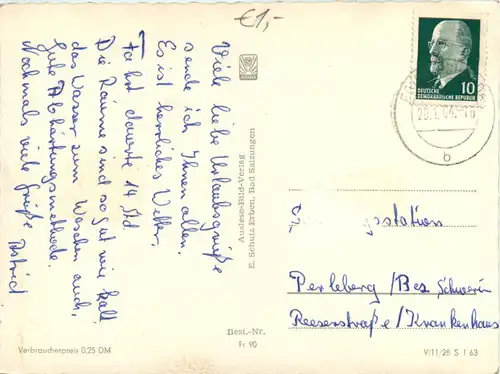 €1,-
Viele liebe Urlaubsgrüße
sende ich Ihnen allen.
Es ist herrliches Wetter,
Fahrt dauerte 14 Std
Die Räume sind so gut wie kalt
das Wasser zum Waschen auch,
gute Abhärtungsmethode.
Nochmals viele Grüße
Astrid
Auslese-Bild-Verlag
E. Schulz Erben, Bad Salzungen
DEUTSCHE
DEMOKRATISCHE REPUBLIK
10
b
station
Perleberg/Bez. Schwerin
Reeserstraße/Krankenhaus
Best.-Nr.
Fr 90
Verbraucherpreis 0,25 DM
V/11/28 S 1 63